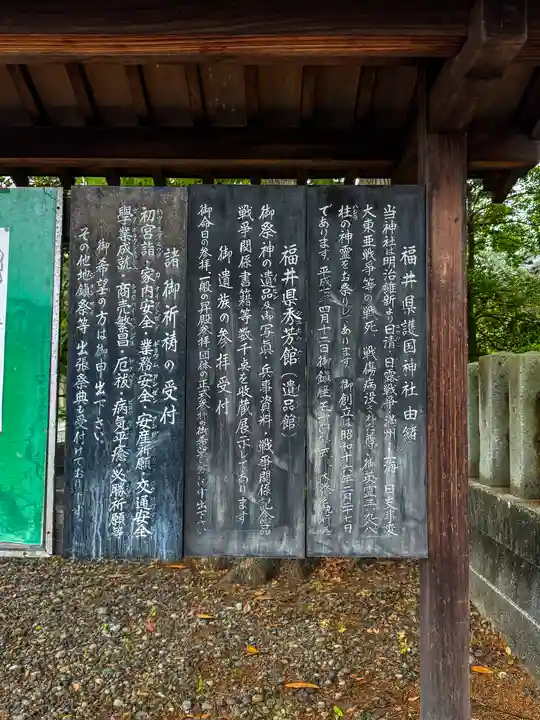 福井県護国神社 由緒
当神社は明治維新より日清・日露戦争・満州・上海・日支事変
大東亜戦争等の戦死、戦傷病没された
柱の神霊をお祭りしてあります 御創立は昭和十六年
であります。平成三 四月十二日御鎮座
福井県秀芳館(遺品館)
御祭神の遺品及御写真・兵事資料・戦争関係記念品
戦争関係書籍等数千点を収蔵展示してあります
御遺族の参拝受付
御命日の参拝 一般の昇殿参拝団体の正式参拝の御希望
諸御祈祷の受付
初宮詣・家内安全・業務安全・安産祈願・交通安全
学業成就・商売繁昌・厄祓・病気平癒・必勝祈願等
御希望の方は御申出下さい
その他地鎮祭等 出張祭典も受付けております